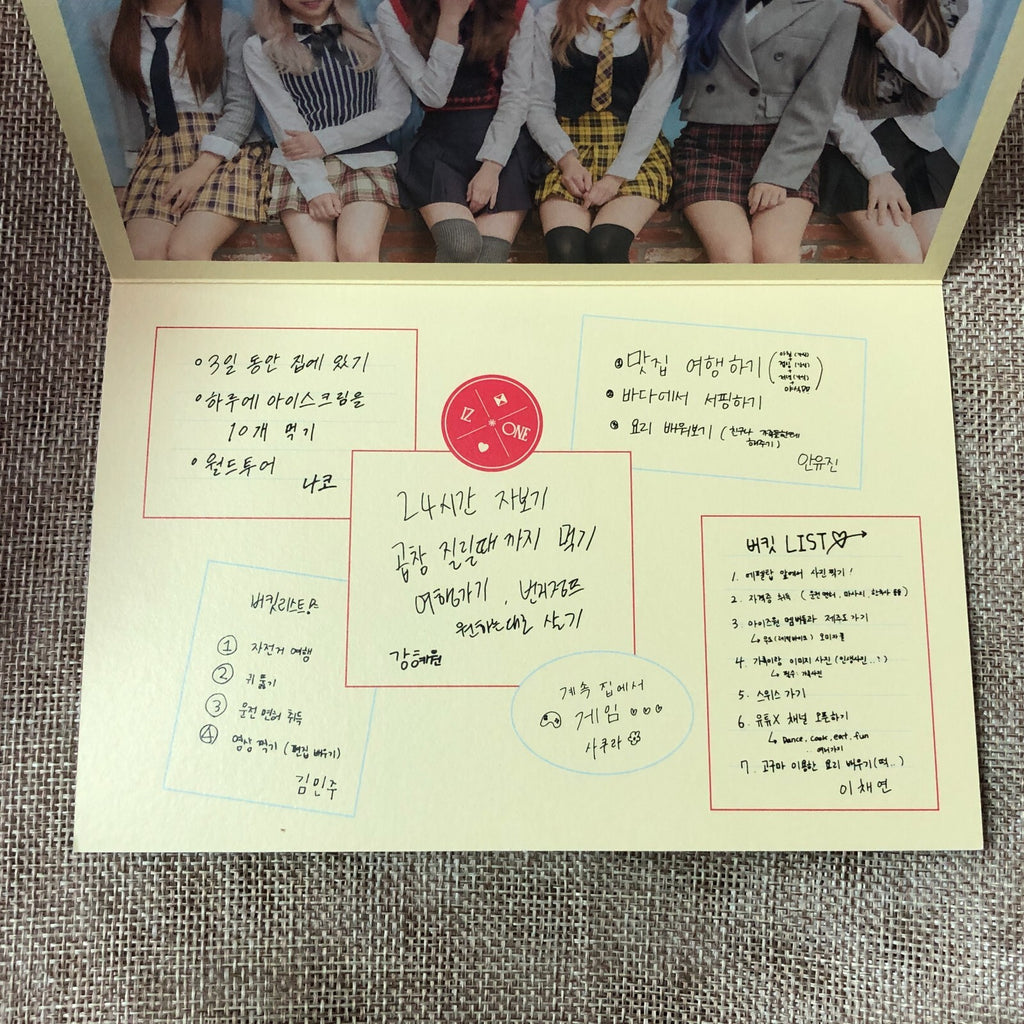 • 3일 동안 집에 있기
• 하루에 아이스크림을
10개 먹기
• 월드투어
나코
IZ
ONE
① 맛집 여행하기
② 바다에서 서핑하기
③ 요리 배워보기 (친구나 가족들한테
해주기)
안유진
24시간 자보기
곱창 질릴때까지 먹기
여행가기, 번지점프
원하는대로 살기
강혜원
버킷리스트
① 자전거 여행
② 귀 뚫기
③ 운전 면허 취득
④ 영상 찍기 (편집 배우기)
김민주
계속 집에서
게임 ♡♡♡
사쿠라
버킷 LIST
1. 에펠탑 앞에서 사진찍기!
2. 자격증 취득 (운전면허, 마사지, 한국사 등등)
3. 아이즈원 멤버들과 제주도 가기
4. 가족이랑 이미지 사진 (인생사진..?)
↳ 필수 : 가족사진
5. 스위스 가기
6. 유튜X 채널 오픈하기
↳ Dance, cook, eat, fun
여러가지
7. 고구마 이용한 요리 배우기 (떡..)
이채연